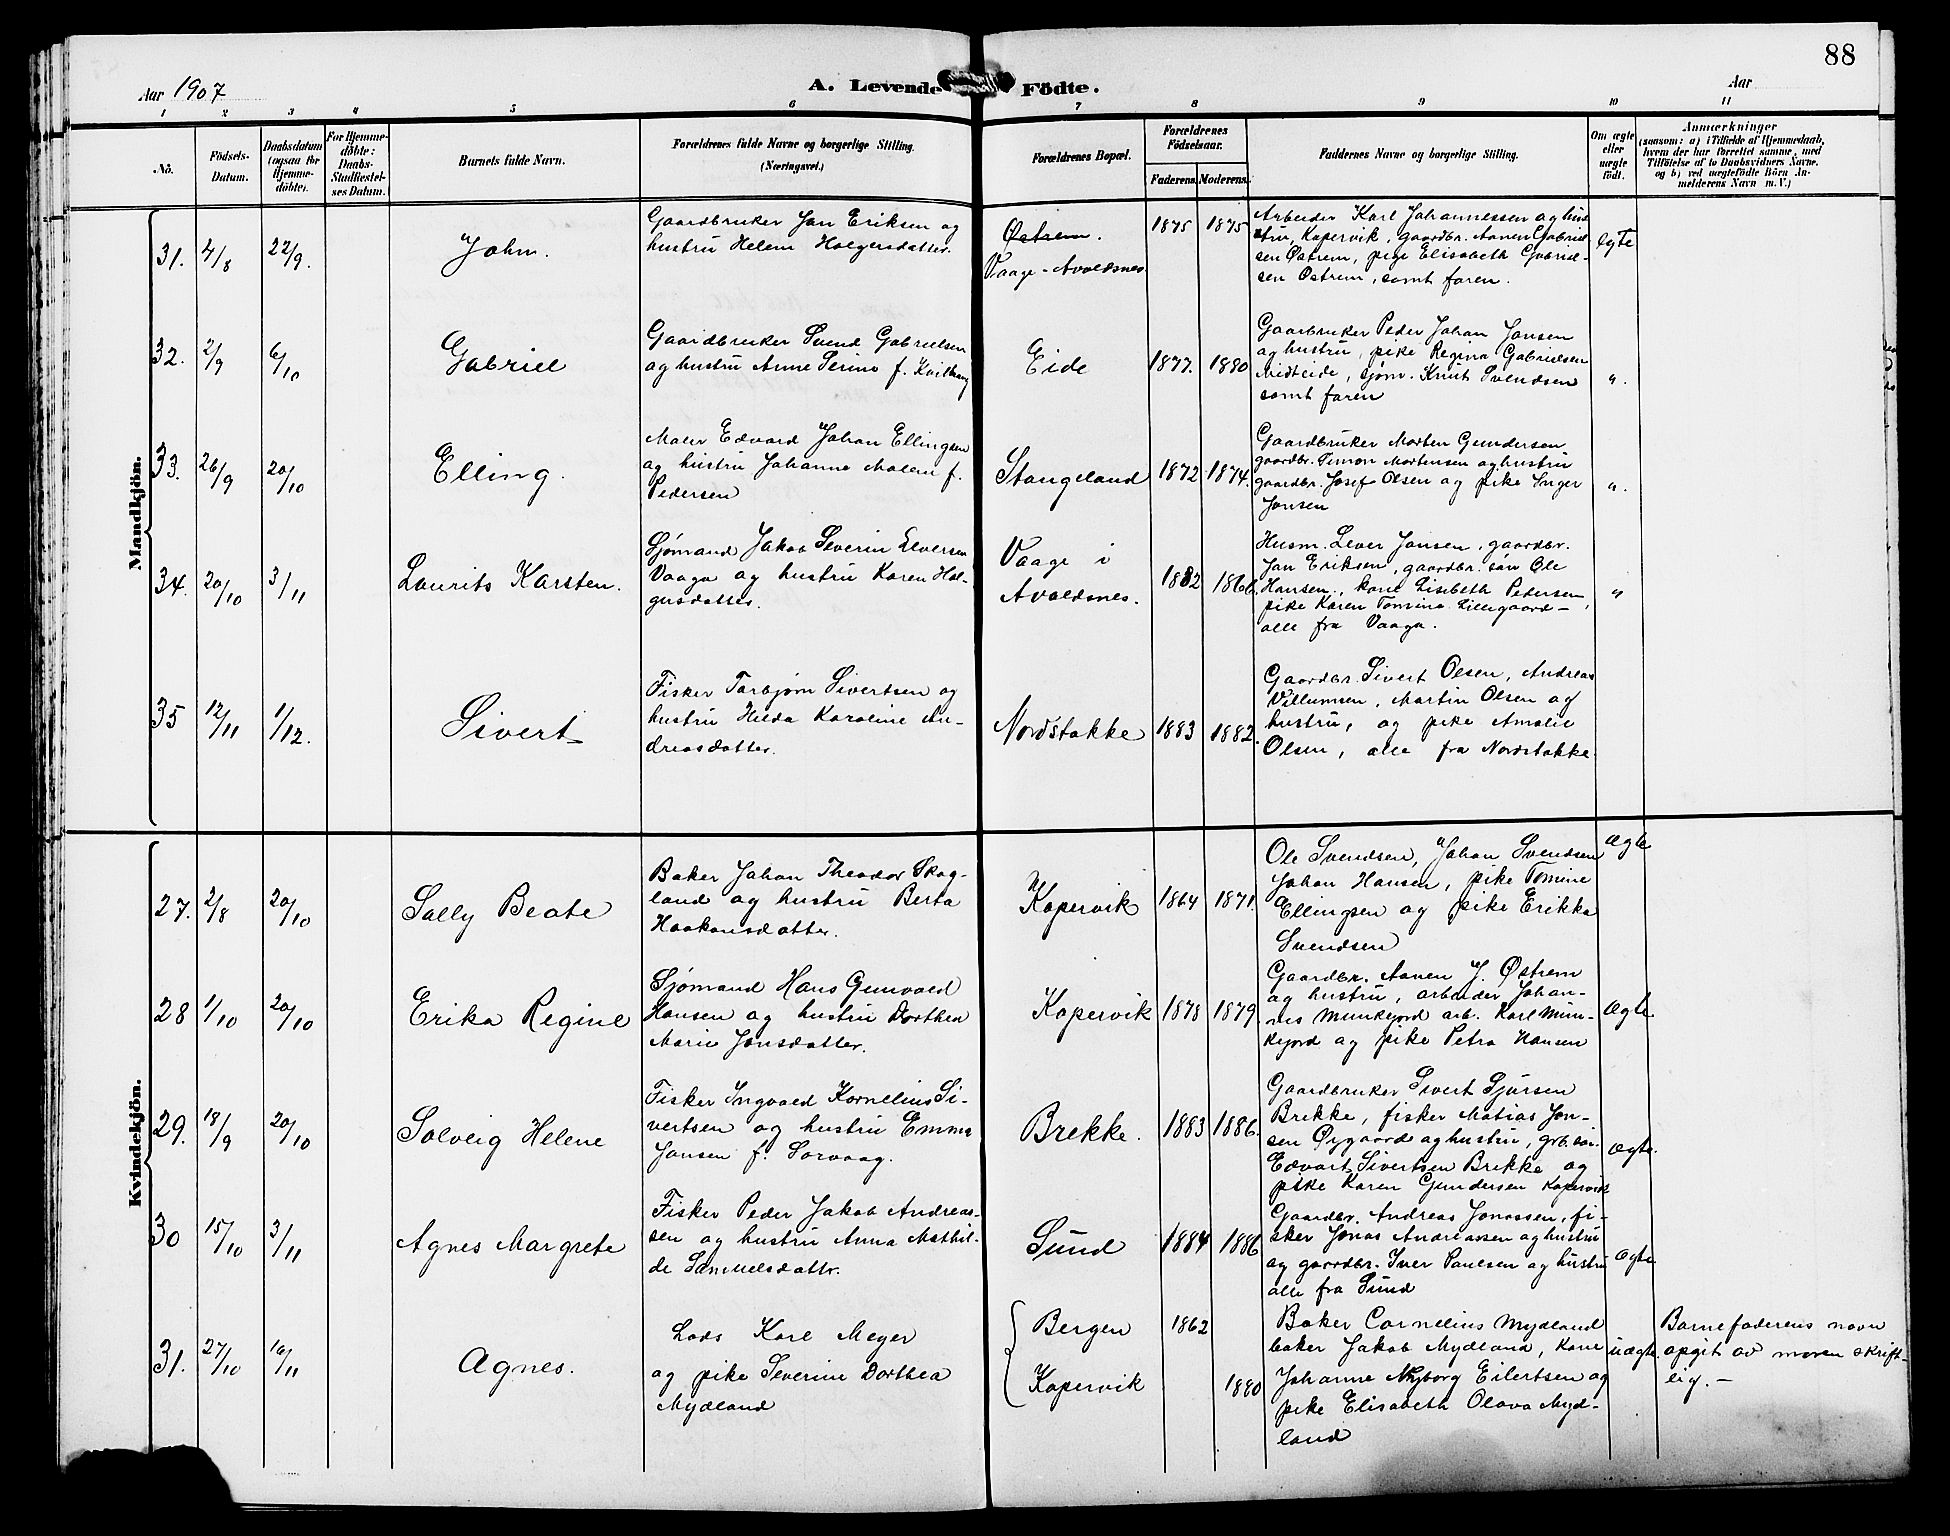 88
Aar 1907
A. Levende Födte.
Aar
1 2 3 4 5 6 7 8 9 10 11
No.
Födsels-
Datum.
Daabsdatum
(ogsaa for
Hjemme-
döbte).
For Hjemme-
döbte:
Daabs-
Stadfæstel-
ses Datum.
Barnets fulde Navn.
Forældrenes fulde Navne og borgerlige Stilling.
(Næringsvei.)
Forældrenes Bopæl.
Forældrenes
Födselsaar.
Faderens.
Moderens.
Faddernes Navne og borgerlige Stilling.
Om ægte
eller
uægte
födt.
Anmærkninger
(saasom: a) i Tilfælde af Hjemmedaab,
hvem der har forrettet samme, med
Tilföielse af to Daabsvidners Navne,
og b) ved uægtefödte Börn An-
melderens Navn m. V.)
Mandkjön.
31. 4/8 22/9.
John.
Gaardbruker Jan Eriksen og
hustru Helene Holgersdatter.
Østrem.
Vaage - Avaldsnes
1875 1875
Arbeider Karl Johannessen og hus
tru, Kopervik, gaardbr. Aanen Gabriel
sen Østrem, pige Elisabeth Gabriel-
sen Østrem, samt faren.
Egte
32. 2/9 6/10
Gabriel
Gaardbruker Svend Gabrielsen
og hustru Anne Serine f.
Eide
1877. 1880
Gaarbruker Peder Johan Jansen
og hustru, pike Regina Gabrielsen
Midteide, sjøm. Knut Svendsen
samt faren
"
33. 26/9 20/10
Elling.
Maler Edvard Johan Ellingsen
og hustru Johanne Malene f.
Pedersen
Stangeland
1872 1874.
Gaardbruker Morten Gundersen
gaardbr. Simon Mortensen og hustru
gaardbr. Josef Olsen og pike Inger
Jansen
"
34. 20/10 3/11
Laurits Karsten.
Sjømand Jakob Severin Leversen
Vaage og hustru Karen Hol-
gersdatter.
Vaage i
Avaldsnes.
1882 1866.
Husm. Lever Jansen, gaardbr.
Jan Eriksen, gaardbr. søn Ole
Hansen, kone Lisebeth Pedersen,
pike Karen Tomine Lillegaard -
alle fra Vaage.
"
35 12/11 1/12.
Sivert
Fisker Torbjørn Sivertsen og
hustru Hilda Karoline An-
dreasdatter.
Nordstokke
1883 1882.
Gaardbr. Sivert Olsen, Andreas
Villumsen, Martin Olsen og
hustru, og pike Amalie
Olsen, alle fra Nordstokke
Kvindekjön.
27. 2/8 20/10
Sally Beate
Baker Johan Theodor Skog-
land og hustru Berta
Haakonsdatter.
Kopervik
1864 1871.
Ole Svendsen, Johan Svendsen
Johan Hansen, pike Tomine
Ellingsen og pike Erikka
Svendsen
ægte
28 1/10 20/10
Erika Regine
Sjømand Hans Gunvald
Hansen og hustru Dorthea
Marie Jonsdatter.
Kopervik
1878 1879
Gaardbr. Aanen J. Østrem
og hustru, arbeider Johan-
nes Munkejord arb. Karl Mun-
kejord og pike Petra Hansen
ægte
29. 18/9 20/10
Solveig Helene
Fisker Ingvald Kornelius Si-
vertsen og hustru Emma
Jansen f. Sørvaag.
Brekke.
1883 1886.
Gaardbruker Sivert Sjursen
Brekke, fisker Matias Jon-
sen Øygaard og hustru, grb. søn
Edvart Sivertsen Brekke og
pike Karen Gundersen Kopervik
ægte.
30 15/10 3/11
Agnes Margrete
Fisker Peder Jakob Andreas-
sen og hustru Anna Mathil-
de Samuelsdattr.
Sund
1884 1886
Gaardbr. Andreas Jonassen, fi-
sker Jonas Andreassen og hustru
og gaardbr. Iver Paulsen og hustru
alle fra Sund
ægte
31. 27/10 10/11
Agnes.
Lods Karl Meyer
og pike Severine Dorthea
Mydland
Bergen
Kopervik
1862
1880
Baker Cornelius Mydland
baker Jakob Mydland, Kone
Johanne Nyborg Eilertsen og
pike Elisabeth Olava Myd-
land
uægte.
Barnefaderens navn
opgit av moren skrift-
lig. -